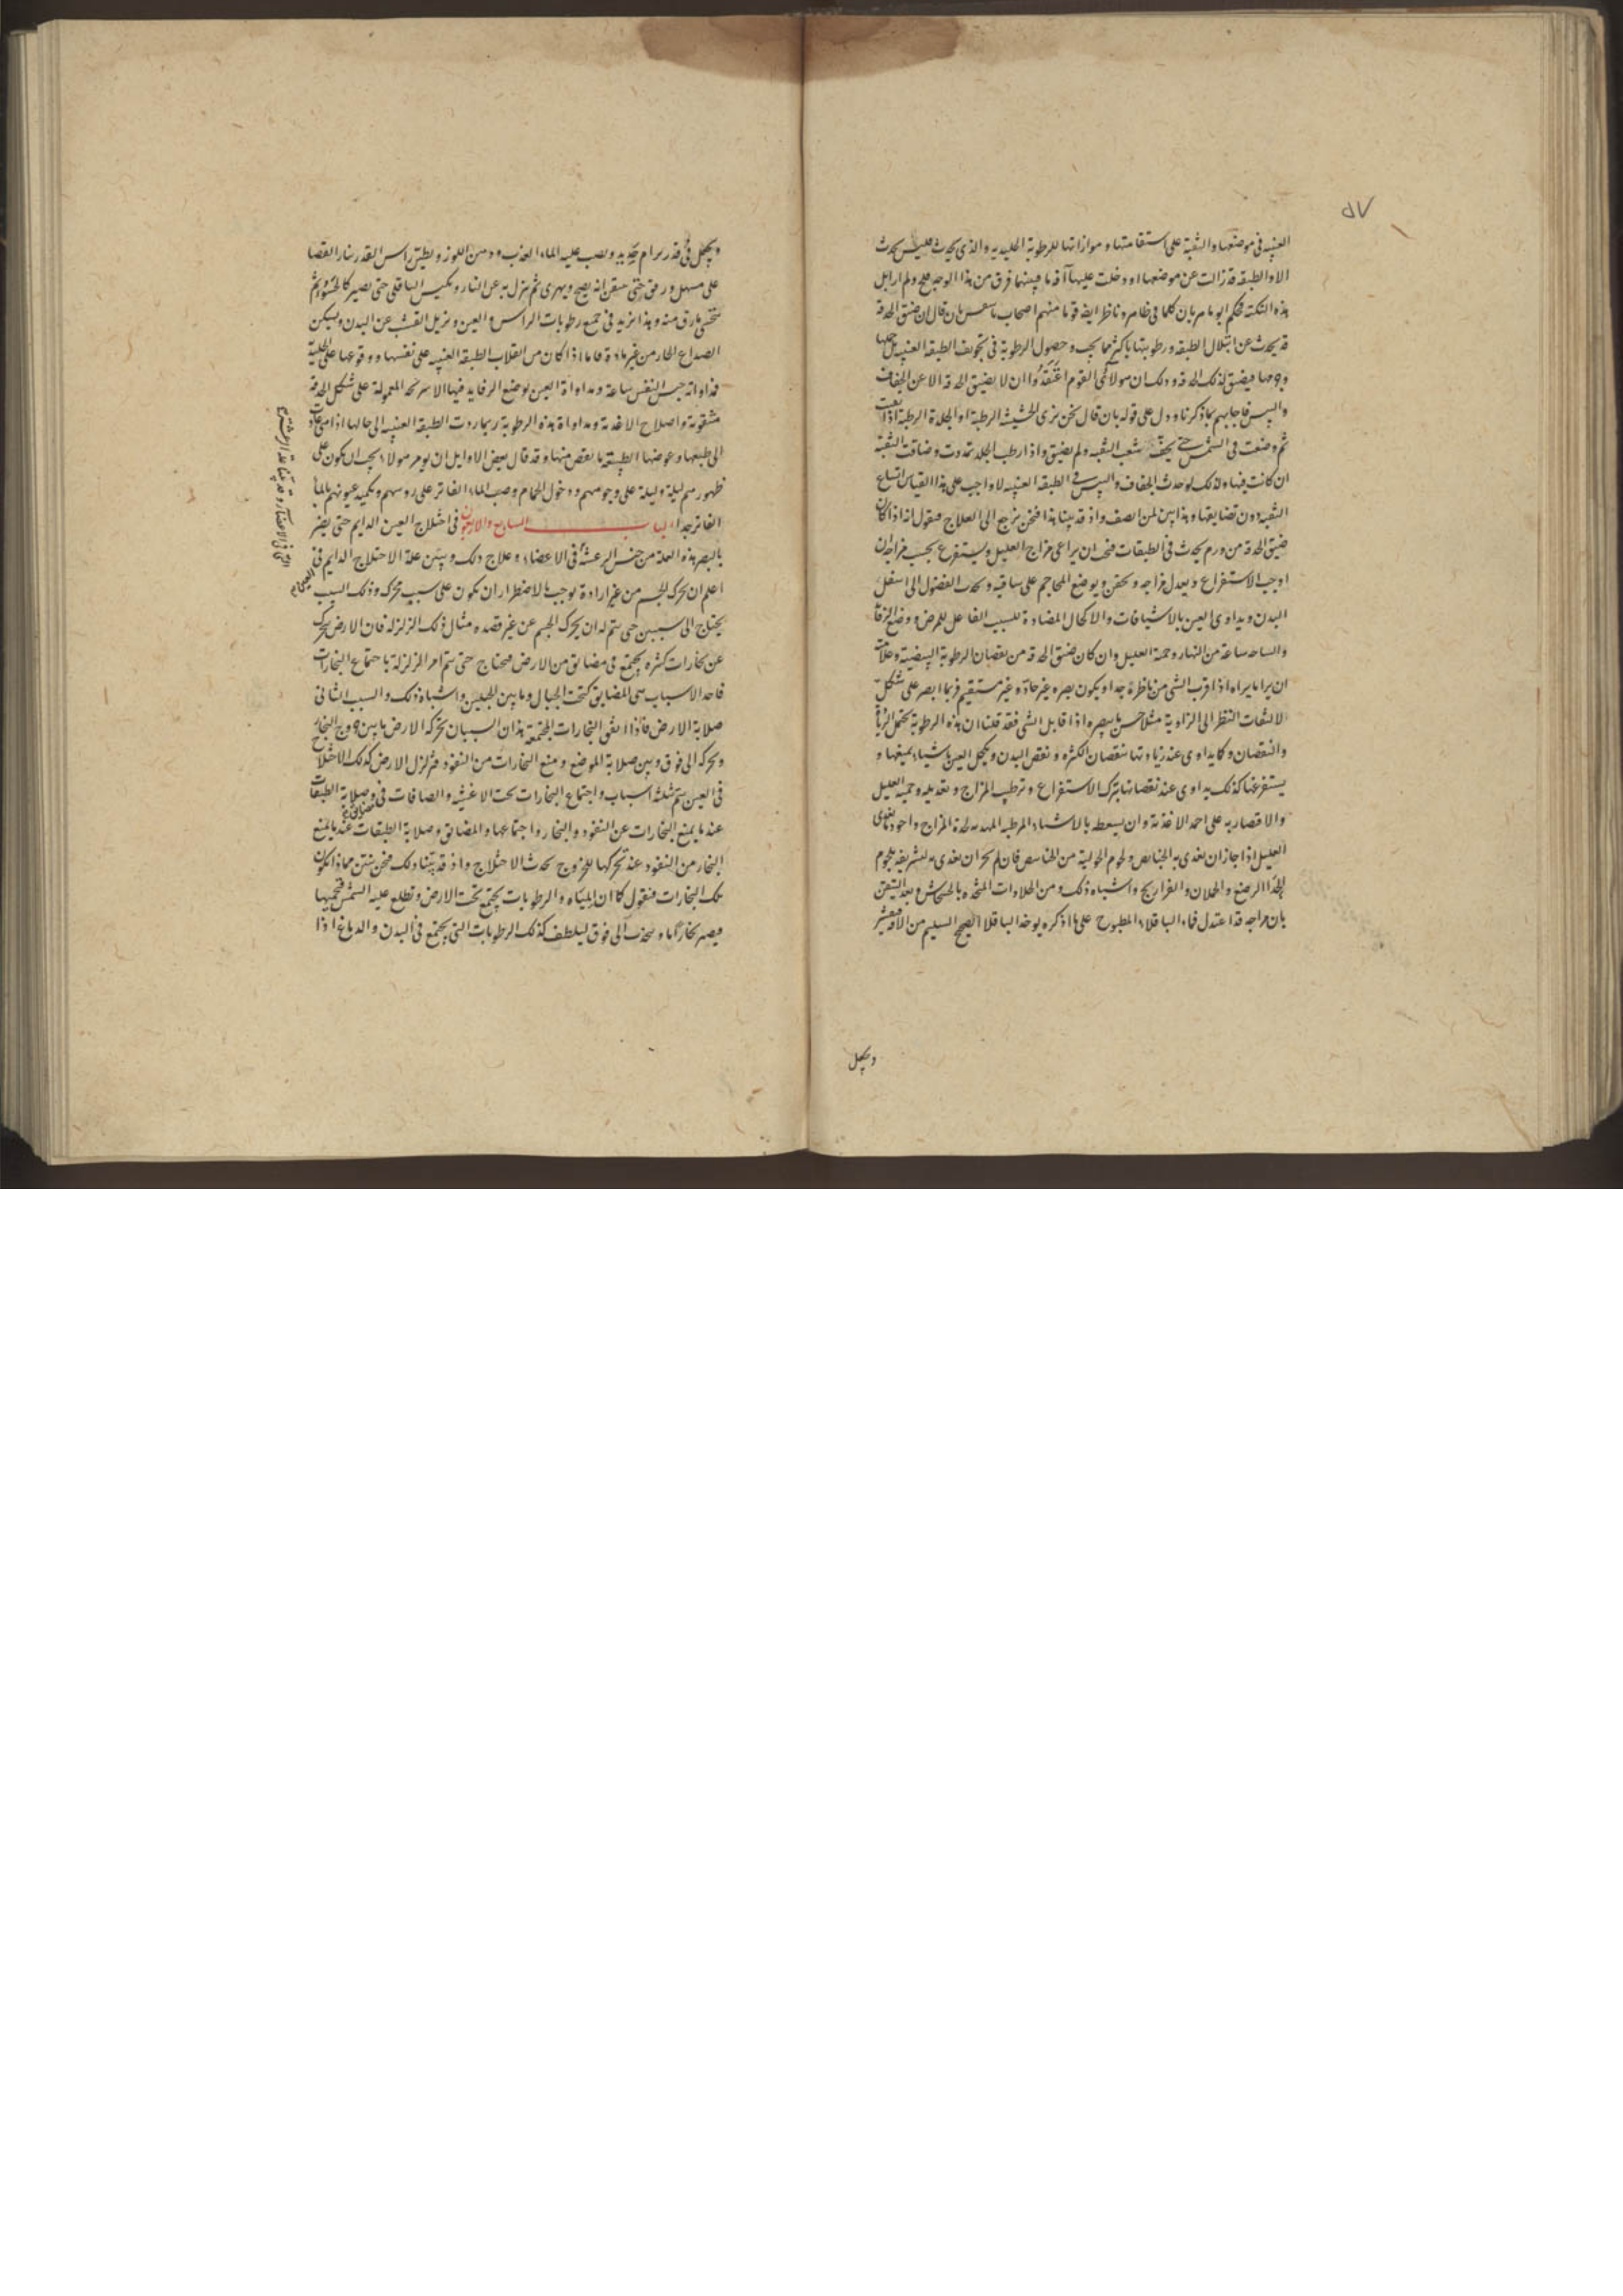 ٨٧
العنبيه في موضعها والثقبة على استقامتها و موازاتها للرطوبة الجليديه والذي يحدث فليس يحدث
الا والطبقه قد زالت عن موضعها او دخلت عليها آفة ما فبينهما فرق من هذا الوجه ولم ازل
هذه النكتة محكم ابو ماهر بان كلما في ظاهره ناظر ايضه قوما منهم اصحاب بان قال ان ضيق الحدقة
قد يحدث عن ابتلال الطبقه ورطوبتها باكثر مما يجب وحصول الرطوبة في تجويف الطبقه العنبيه
فيضيق لذلك الحدقه وذلك ان هولاء القوم اعتقدوا ان لا يضيق الحدقه الا عن الجفاف
واليبس فاجابهم بما ذكرنا ودل على قوله بان قال نحن نرى الخشبة الرطبة او الجلدة الرطبة اذا ثقبت
ثم وضعت في الشمس حتى يجف الثقبه ولم يضيق واذا رطب الجلد تمددت وضاقت الثقبة
ان كانت فيها وكذلك لو حدث الجفاف واليبس في الطبقه العنبيه لاوجب على هذا القياس اتساع
الثقبه دون تضايقها وهذا بين لمن انصف واذ قد بينا هذا فنحن نرجع الى العلاج فنقول انه اذا كان
ضيق الحدقة من ورم يحدث في الطبقات فيجب ان يراعى مزاج العليل ويستفرغ بحسب مزاجه ان
اوجب الاستفراغ ويبدل مزاجه ويحقن ويوضع المحاجم على ساقيه ويجذب الفضول الى اسفل
البدن ويداوى العين بالاشيافات والاكحال المضادة للسبب الفاعل للمرض ووضع الرفاده
ساعة من النهار وحمية العليل وان كان ضيق الحدقة من نقصان الرطوبة البيضية وعلامته
ان يرا ما يراه اذا قرب الشي من ناظره جدا ويكون بصره غير حاد وغير مستقيم فربما ابصر على شكل
لالتفات النظر الى الزاوية مثلا حسن ما يبصره اذا قابل الشي فقد قلنا ان هذه الرطوبة تحتمل الزيادة
والنقصان وكما يداوى عند زيادتها بنقصان الكثره ونقص البدن وبكحل العين باشياء يميعها و
يستفرغها كذلك يداوى عند نقصانها بترك الاستفراغ وترطيب المزاج وتعديله وحمية العليل
والاقتصار به على احمد الاغذية وان يسعطه بالاشياء المرطبه المهديه لحدة المزاج واجود ما يغذى
العليل اذا جاز ان يغذى به ولحوم الحولية من فان لم يجز ان يغذى به لشريفه بلحوم
الجداء الرضع والحملان والفراريج واشباه ذلك ومن الحلاوات المتخذه بالخشخاش وبعد التيقن
بان مزاجه قد اعتدل فماء الباقلاء المطبوخ على ما اذكره يوخذ الباقلا الصحيح السليم من الافة فيقشر
ويجعل
ويجعل في قدر برام جديد ويصب عليه الماء العذب ودهن اللوز ويطين راس القدر بنار الغضا
على مهل ورفق حتى يتيقن انه يصح ويهرى ثم ينزل به عن النار ويكبس الباقلى حتى يصير كالحشو ثم
يتحسى ما رق منه وهذا يزيد في جميع رطوبات الراس والعين ويزيل القشب عن البدن ويسكن
الصداع الحار من غير مادة فاما اذا كان من انقلاب الطبقه العنبيه على نفسها ووقوعها على الجليدية
فمداواته حبس النفس ساعة ومداواة العين بوضع الرفايد فيها المعمولة على شكل الحدقة
مثقوبة واصلاح الاغذية ومداواة هذه الرطوبة ربما ردت الطبقه العنبيه الى حالها اذا عادت
الى طبعها وعوضها الطبيعه ما نقص منها وقد قال بعض الاوايل ان يومر هولاء يجب ان يكون على
ظهورهم ليلة وليلة على وجوههم ودخول الحمام وصب الماء الفاتر على روسهم وتكميد عيونهم بالماء
الفاتر جدا الباب السابع والاربعون في اختلاج العين الدايم حتى يضر
بالبصر هذه العلة من جنس الرعشة في الاعضاء وعلاج ذلك وبين علة الاختلاج الدايم في
اعلم ان تحرك الجسم من غير ارادة يوجب بالاضطرار ان يكون على سبب محرك وذلك السبب
يحتاج الى سببين حتى يتم له ان يحرك الجسم عن غير قصده مثال ذلك الزلزلة فان الارض تتحرك
عن بخارات كثيره يجتمع في مضايق من الارض فيحتاج حتى يتم امر الزلزلة باجتماع البخارات
فاحد الاسباب هي المضايق كتحت الجبال وما بين الجبلين واشباه ذلك والسبب الثاني
صلابة الارض فاذا اتفق البخارات المجتمعة هذان السببان تحركه الارض ما بين خروج البخار
وتحركه الى فوق وبين صلابة الموضع ومنع البخارات من النفوذ فتزلزل الارض كذلك الاختلاج
في العين يتم بثلثه اسباب واجتماع البخارات تحت الاغشيه والصافات في وصلابة الطبقات
عند ما يمنع البخارات عن النفوذ والبخار واجتماعها والمضايق وصلابة الطبقات عند ما يمنع
البخار من النفوذ عند تحركها للخروج يحدث الاختلاج واذ قد بينا ذلك فنحن نبين مماذا يكون
تلك البخارات فنقول كما ان المياه والرطوبات يجتمع تحت الارض وتطلع عليه الشمس فتحميها
فيصير بخارا ما وينجذب الى فوق ليلطف كذلك الرطوبات التي يجتمع في البدن والدماغ اذا